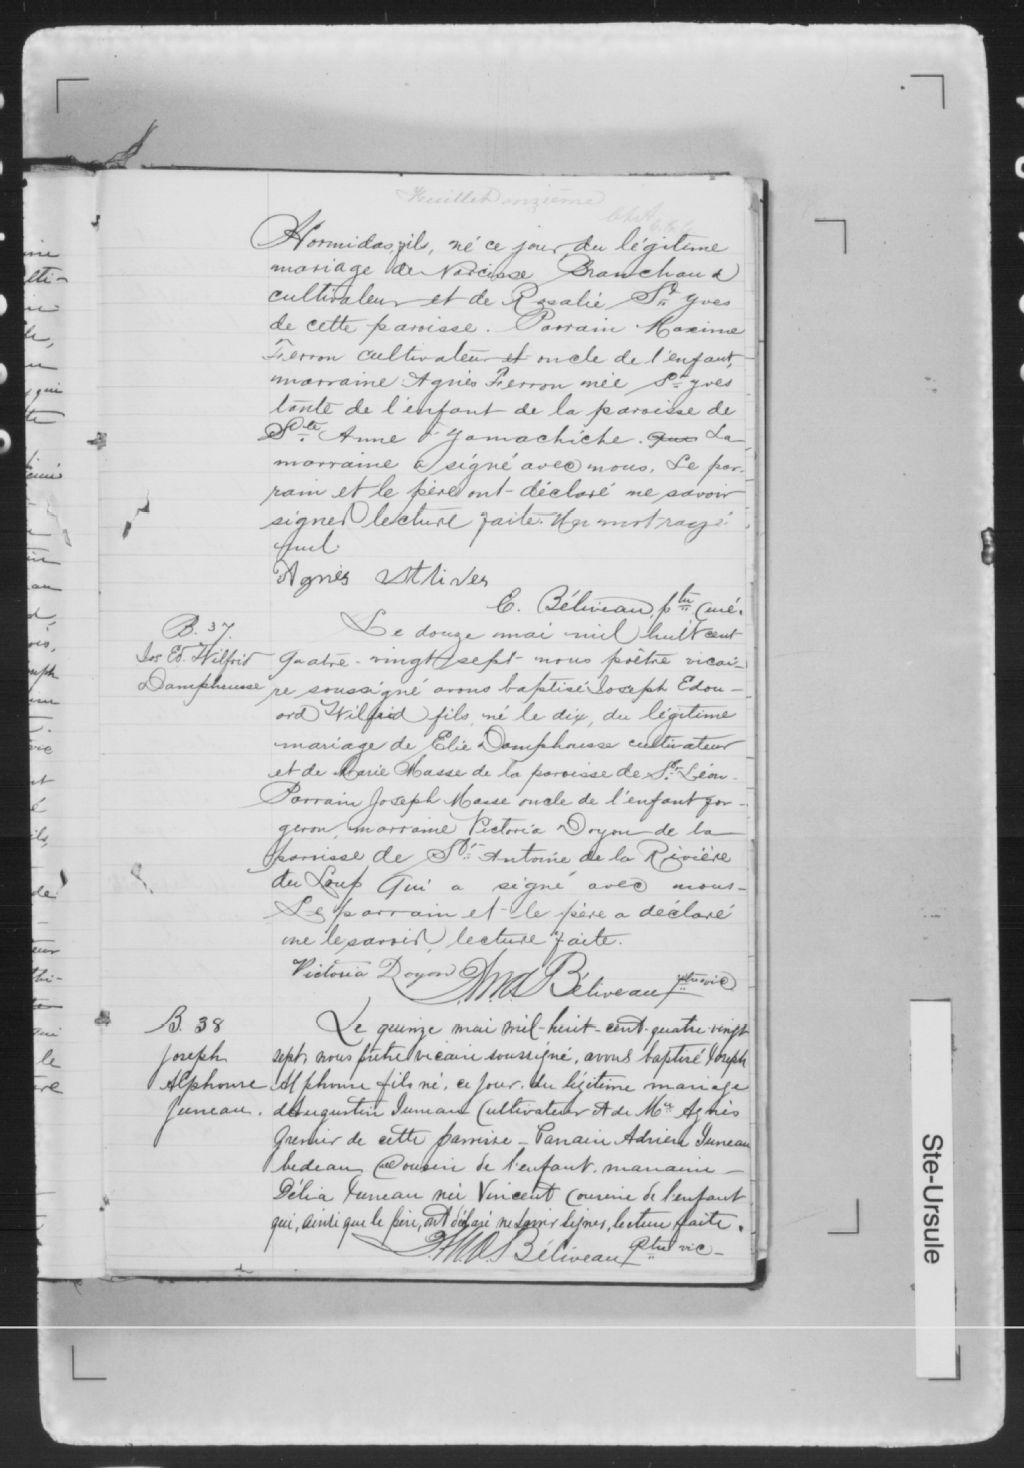 Feuillet onzième
Hormidas, fils, né ce jour du légitime
mariage de Narcisse Branchaud
cultivateur et de Rosalie St Yves
de cette paroisse. Parrain Maxime
Ferron cultivateur et oncle de l'enfant,
marraine Agnès Ferron née St Yves
tante de l'enfant de la paroisse de
Ste Anne d'Yamachiche. que La
marraine a signé avec nous. Le par-
rain et le père ont déclaré ne savoir
signer lecture faite. Un mot rayé
nul
Agnès St Ives
E. Béliveau, ptre Curé.
B. 37.
Jos Ed. Wilfrid
Damphousse
Le douze mai mil huit cent
quatre-vingt sept nous prêtre vicai-
re soussigné avons baptisé Joseph Edou-
ard Wilfrid fils, né le dix, du légitime
mariage de Elie Damphousse cultivateur
et de Marie Masse de la paroisse de St Léon.
Parrain Joseph Masse oncle de l'enfant for-
geron, marraine Victoria Doyon de la
paroisse de St Antoine de la Rivière
du Loup qui a signé avec nous-
Le parrain et le père a déclaré
ne le savoir, lecture faite.
Victoria Doyon Béliveau ptre vic
B. 38
Joseph
Alphonse
Juneau.
Le quinze mai mil-huit-cent-quatre-vingt
sept, nous prêtre vicaire soussigné, avons baptisé Joseph
Alphonse fils né, ce jour, du légitime mariage
d'Augustin Juneau Cultivateur & de Mie Agnès
Grenier de cette paroisse - Parrain Adrien Juneau
bedeau Cousin de l'enfant. marraine -
Délia Juneau née Vincent Cousine de l'enfant
qui, ainsi que le père, ont déclaré ne savoir signer, lecture faite.
Béliveau Ptre vic-
Ste-Ursule